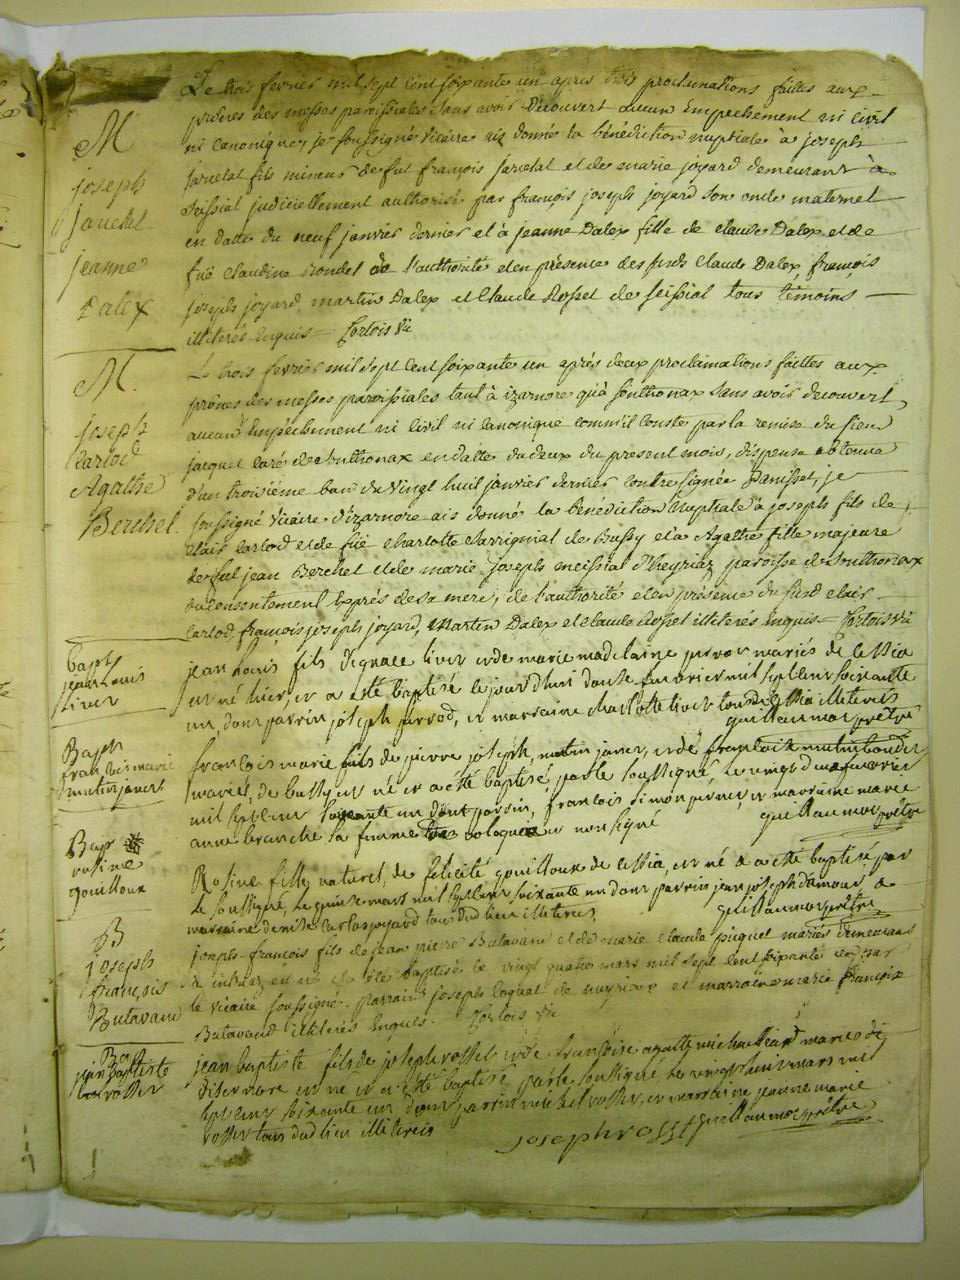 M
joseph
janetat
jeanne
Dalex
Le trois fevrier mil sept cent soixante un apres trois proclamations faites aux
prônes des messes paroissiales sans avoir découvert aucun Empechement ni civil
ni canonique, je soussigné vicaire ais donné la bénédiction nuptiale à joseph
janetat fils mineur de fut françois janetat et de marie joyard demeurant à
seissial judiciellement authorisé par françois joseph joyard son oncle maternel
en datte du neuf janvier dernier et à jeanne Dalex fille de claude Dalex et de
fuë claudine de l'authorité et en présence des susds Claude Dalex, françois
joseph joyard martin Dalex et Claude Rosset de seissial tous témoins
illiterés Enquis Cortois vic
M.
joseph
Carlod
Agathe
Berchet
Le trois fevrier mil sept cent soixante un après deux proclamations faittes aux
prônes des messes paroissiales tant à izarnore qu'à sonthonax sans avoir decouvert
aucun Empéchement ni civil ni canonique comm'il conste par la remise du sieur
jacquet curé de sonthonax en datte du deux du present mois, dispense obtenue
d'un troisiéme ban du vingt huit janvier dernier contresignée Panisset, je
soussigné vicaire d'izarnore ais donné la bénédiction Nuptiale à joseph fils de
clair carlod et de fuë charlotte de Bussy et à Agathe fille majeure
de fut jean Berchet et de marie joseph meissiat d'heyriaz paroisse de sonthonax
du consentement Exprés de sa mere, de l'authorité et en présence du susd clair
carlod, françois joseph joyard, Martin Dalex et claude Rosset illiterés Enquis Cortois vic
Bapt
jean Louis
livet
jean Louis fils d'ignace livet et de marie madelaine mariés de
et né hier, et a eté baptisé le jourdhui douse fevrier mil sept cent soixante
un, dont parrin joseph et marraine charlotte livet tous de illiterés
guillaumot prêtre
Bapt
françois marie
mutin janet
françois marie fils de pierre joseph, mutin janet, et de françoise
mariés, de bussy et né et a eté baptisé, par le soussigné, le vingt deux fevrier
mil sept cent soixante un dont parrin, françois simon et marraine marie
anne la femme non signé guillaumot prêtre
Bap
rosine
gouilloux
Rosine fille naturel, de felicité gouilloux de et né & a eté baptisé par
le soussigné, le quinse mars mil sept cent soixante un dont parrin jean joseph damour &
marraine denise joyard tous dud lieu illiterés, guillaumot prêtre
B
joseph
françois
Butavand
joseph françois fils de jean pierre Butavand et de marie claude piquet mariés demeurant
à intriaz est né et a été baptisé le vingt quatre mars mil sept cent soixante un par
le vicaire soussigné. parrain joseph loquet de et marraine marie françoise
Butavand illiterés Enquis. Cortois vic
Bap
jean Baptiste
rosset
jean baptiste fils de joseph rosset et de françoise agathe mariés de
et né et a eté baptisé par le soussigné le vingt huit mars mil
sept cent soixante un dont parrin michel rosset, et marraine jeanne marie
rosset tous dud lieu illiterés
joseph rosset guillaumot prêtre